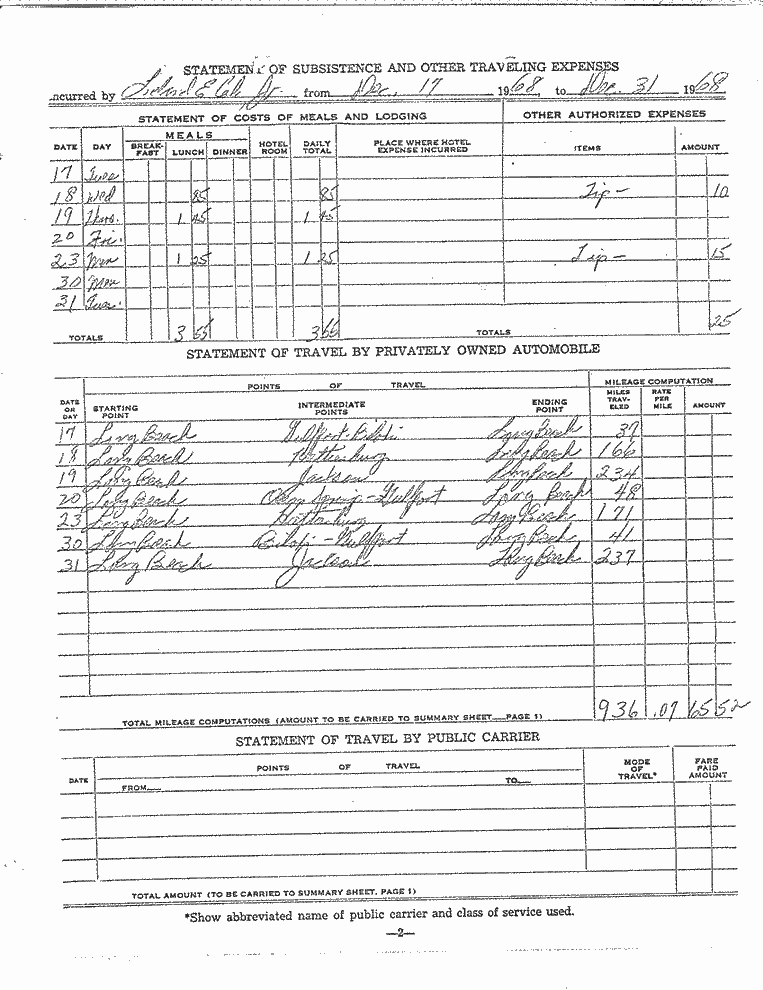 STATEMENT OF SUBSISTENCE AND OTHER TRAVELING EXPENSES
incurred by from Dec. 17 1968, to Dec. 31 1968
STATEMENT OF COSTS OF MEALS AND LODGING OTHER AUTHORIZED EXPENSES
DATE DAY MEALS BREAK-FAST LUNCH DINNER HOTEL ROOM DAILY TOTAL PLACE WHERE HOTEL EXPENSE INCURRED ITEMS AMOUNT
17 Tues
18 Wed 85 85 Tip— 10
19 Thurs. 1 45 1 45
20 Fri.
23 Mon 1 25 1 25 Tip— 15
30 Mon
31 Tues.
TOTALS 3 55 3 TOTALS 25
STATEMENT OF TRAVEL BY PRIVATELY OWNED AUTOMOBILE
DATE OR DAY POINTS OF TRAVEL MILEAGE COMPUTATION
STARTING POINT INTERMEDIATE POINTS ENDING POINT MILES TRAV-ELED RATE PER MILE AMOUNT
17 Long Beach Gulfport-Biloxi Long Beach 39
18 Long Beach Hattiesburg Long Beach 166
19 Long Beach Jackson Long Beach 234
20 Long Beach Ocean Springs-Gulfport Long Beach 48
23 Long Beach Hattiesburg Long Beach 171
30 Long Beach Biloxi-Gulfport Long Beach 41
31 Long Beach Jackson Long Beach 237
TOTAL MILEAGE COMPUTATIONS (AMOUNT TO BE CARRIED TO SUMMARY SHEET—PAGE 1) 936 .07 65 52
STATEMENT OF TRAVEL BY PUBLIC CARRIER
DATE POINTS OF TRAVEL MODE OF TRAVEL* FARE PAID AMOUNT
FROM TO
TOTAL AMOUNT (TO BE CARRIED TO SUMMARY SHEET, PAGE 1)
*Show abbreviated name of public carrier and class of service used.
—2—